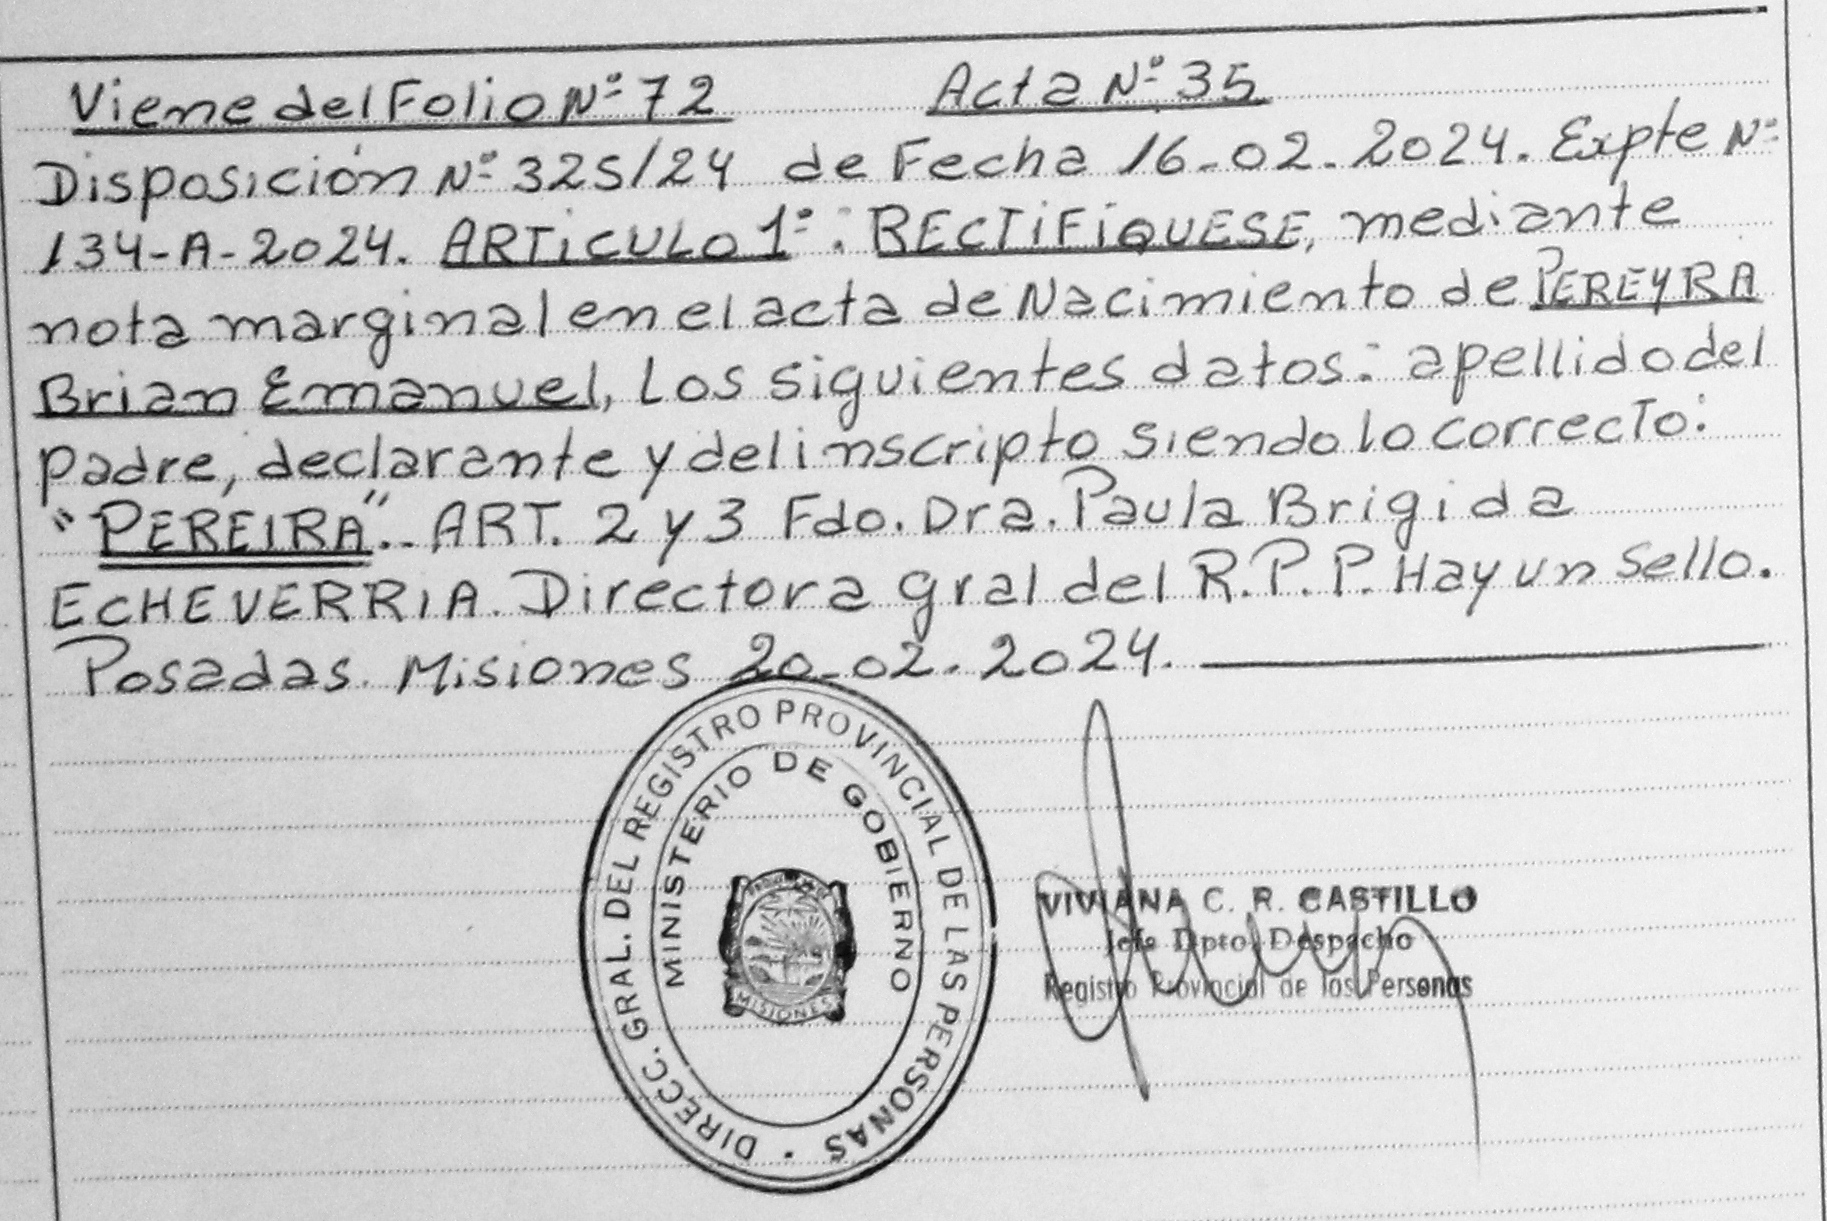 Viene del Folio Nº 72 Acta Nº 35
Disposición Nº 325/24 de Fecha 16-02-2024. Expte Nº
134-A-2024. ARTiCULO 1º: RECTiFiQUESE, mediante
nota marginal en el acta de Nacimiento de PEREYRA
Brian Emanuel, Los siguientes datos: apellido del
padre, declarante y del inscripto siendo lo correcto:
"PEREIRA".- ART. 2 y 3 Fdo. Dra. Paula Brigida
ECHEVERRIA. Directora gral del R.P.P. Hay un Sello.
Posadas. Misiones 20-02-2024.
DIRECC. GRAL. DEL REGISTRO PROVINCIAL DE LAS PERSONAS
MINISTERIO DE GOBIERNO
MISIONES
VIVIANA C. R. CASTILLO
Jefe Dpto. Despacho
Registro Provincial de las Personas